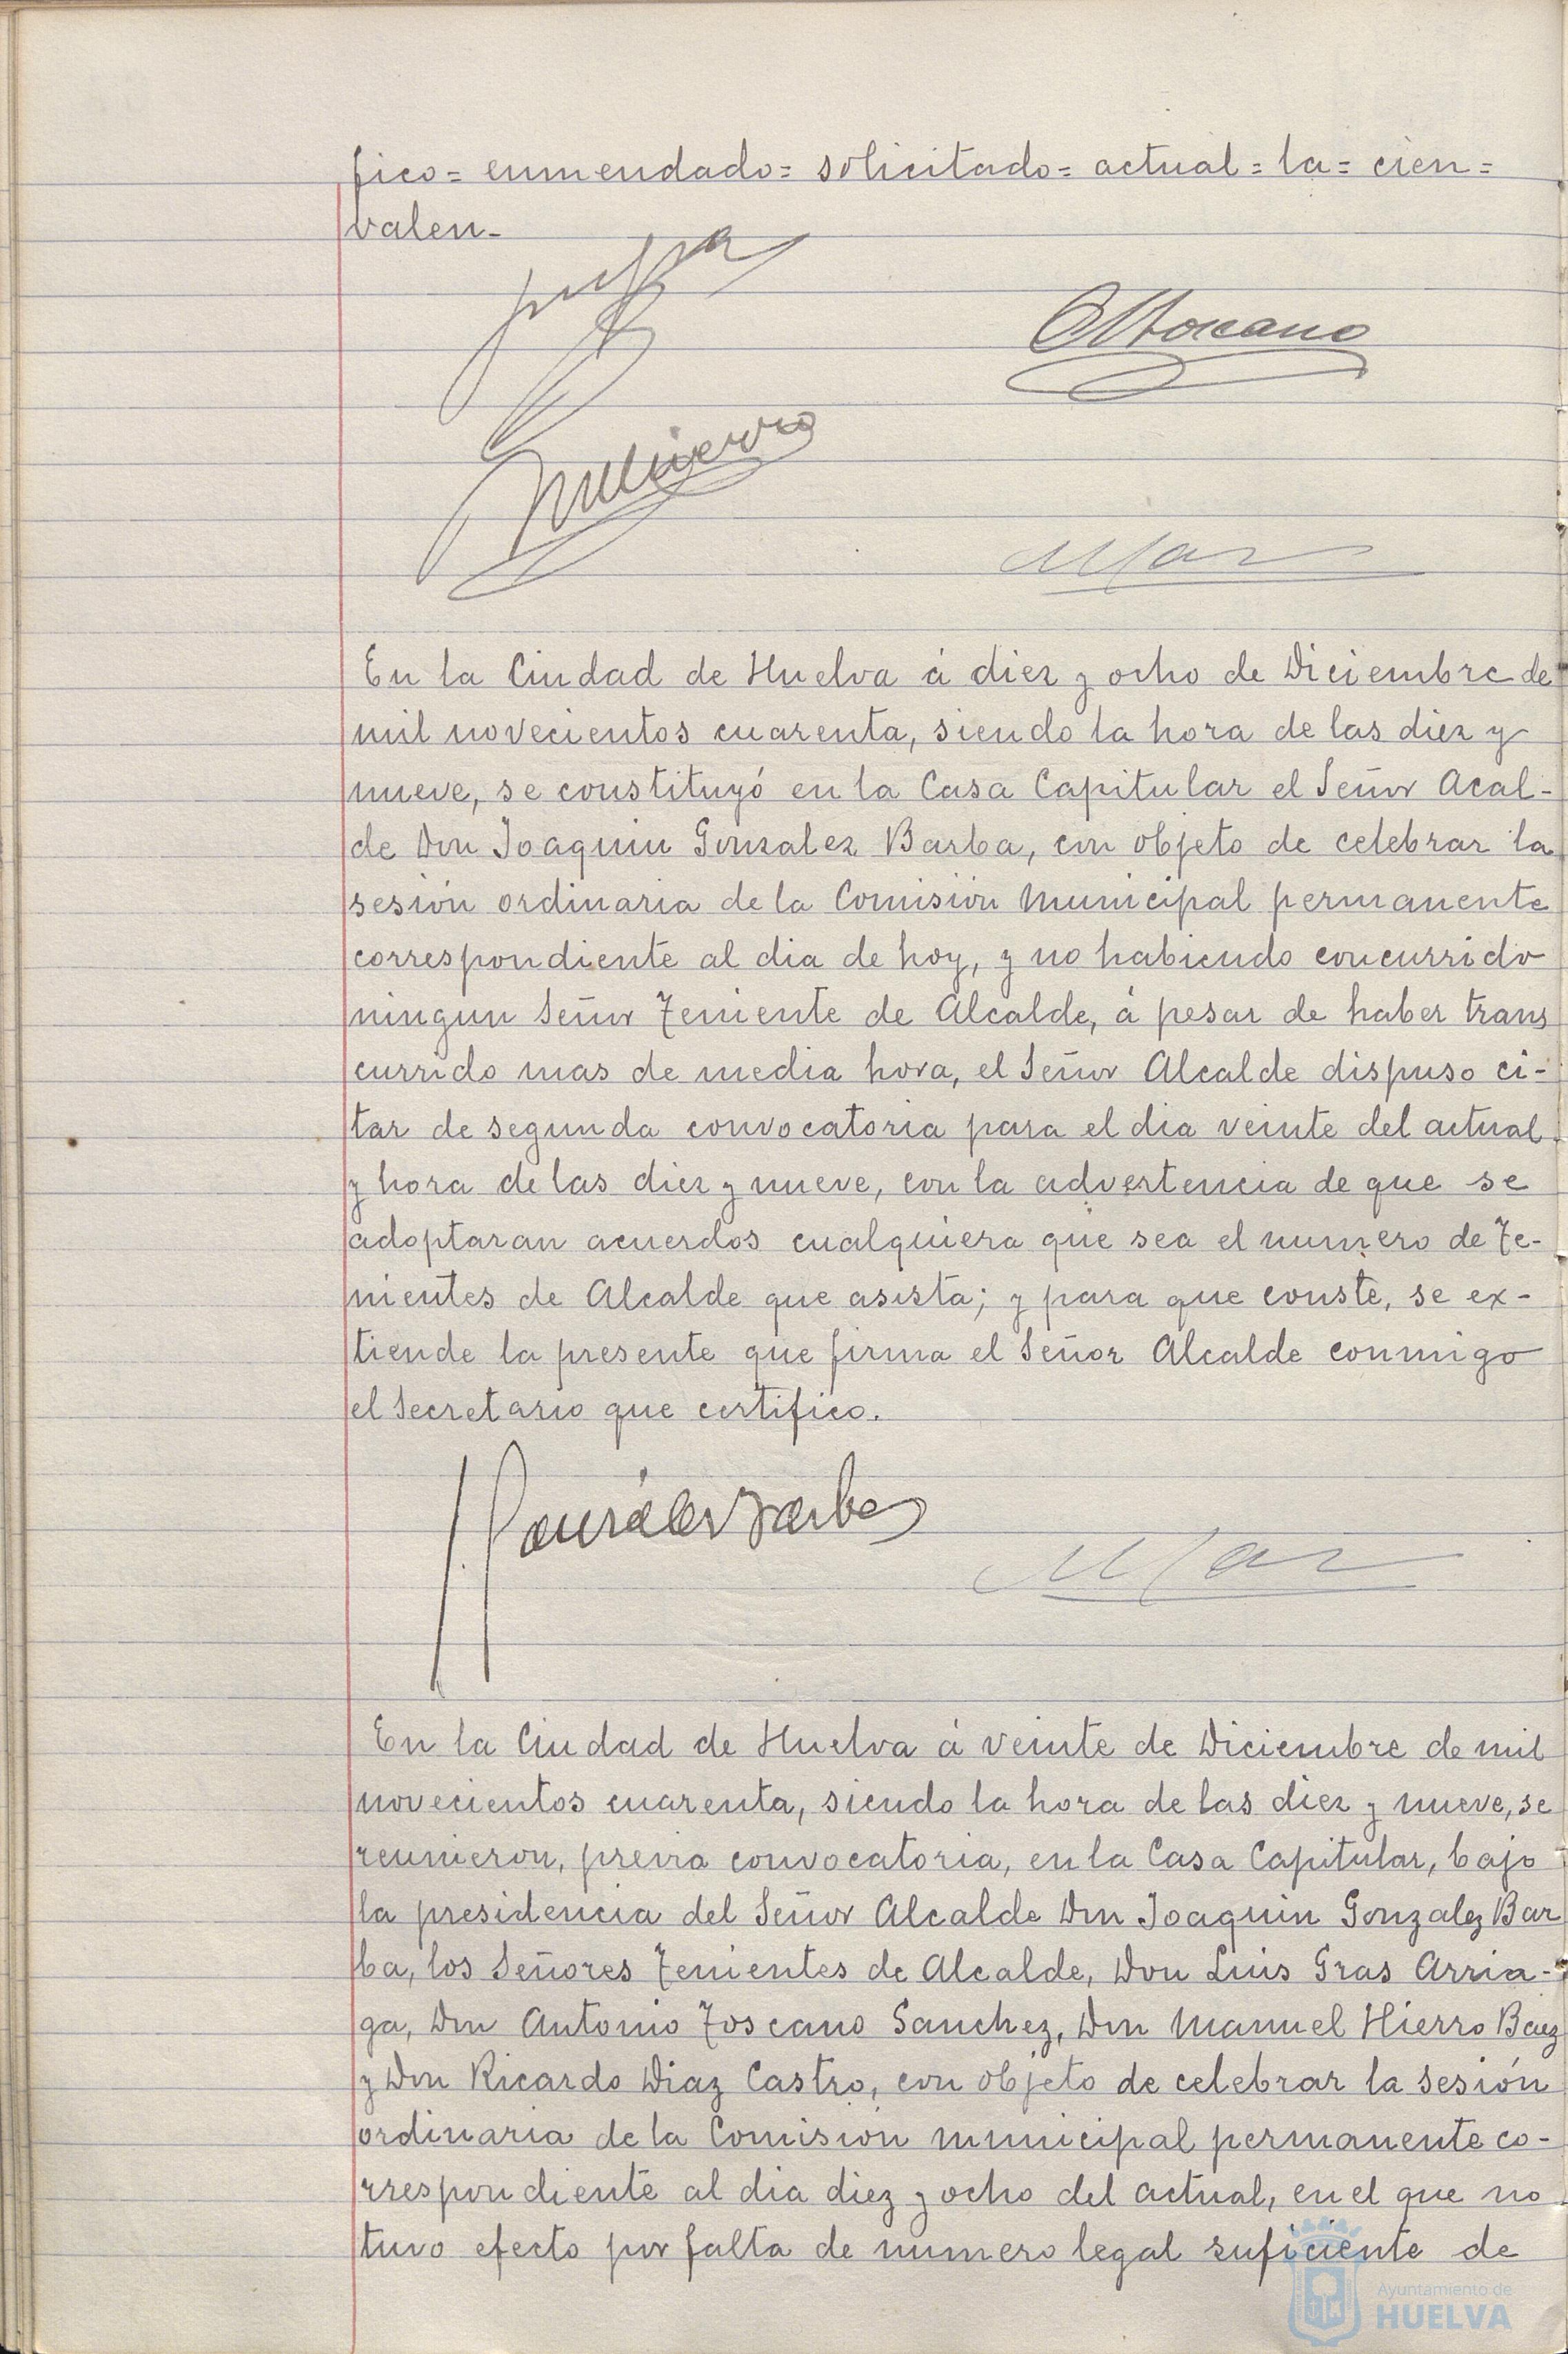 fico = enmendado = solicitado = actual = la = cien =
valen -
A Toscano
M Hierro
En la Ciudad de Huelva á diez y ocho de Diciembre de
mil novecientos cuarenta, siendo la hora de las diez y
nueve, se constituyó en la Casa Capitular el Señor Acal-
de Don Joaquin Gonzalez Barba, con objeto de celebrar la
sesión ordinaria de la Comisión Municipal permanente
correspondiente al dia de hoy, y no habiendo concurrido
ningun Señor Teniente de Alcalde, á pesar de haber trans
currido mas de media hora, el Señor Alcalde dispuso ci-
tar de segunda convocatoria para el dia veinte del actual
y hora de las diez y nueve, con la advertencia de que se
adoptaran acuerdos cualquiera que sea el numero de Te-
nientes de Alcalde que asista; y para que conste, se ex-
tiende la presente que firma el Señor Alcalde conmigo
el Secretario que certifico.
J González Barba
En la Ciudad de Huelva á veinte de Diciembre de mil
novecientos cuarenta, siendo la hora de las diez y nueve, se
reunieron, previa convocatoria, en la Casa Capitular, bajo
la presidencia del Señor Alcalde Don Joaquin Gonzalez Bar
ba, los Señores Tenientes de Alcalde, Don Luis Gras Arria-
ga, Don Antonio Toscano Sanchez, Don Manuel Hierro Baez
y Don Ricardo Diaz Castro, con objeto de celebrar la sesión
ordinaria de la Comisión municipal permanente co-
rrespondiente al dia diez y ocho del actual, en el que no
tuvo efecto por falta de numero legal suficiente de
Ayuntamiento de
HUELVA